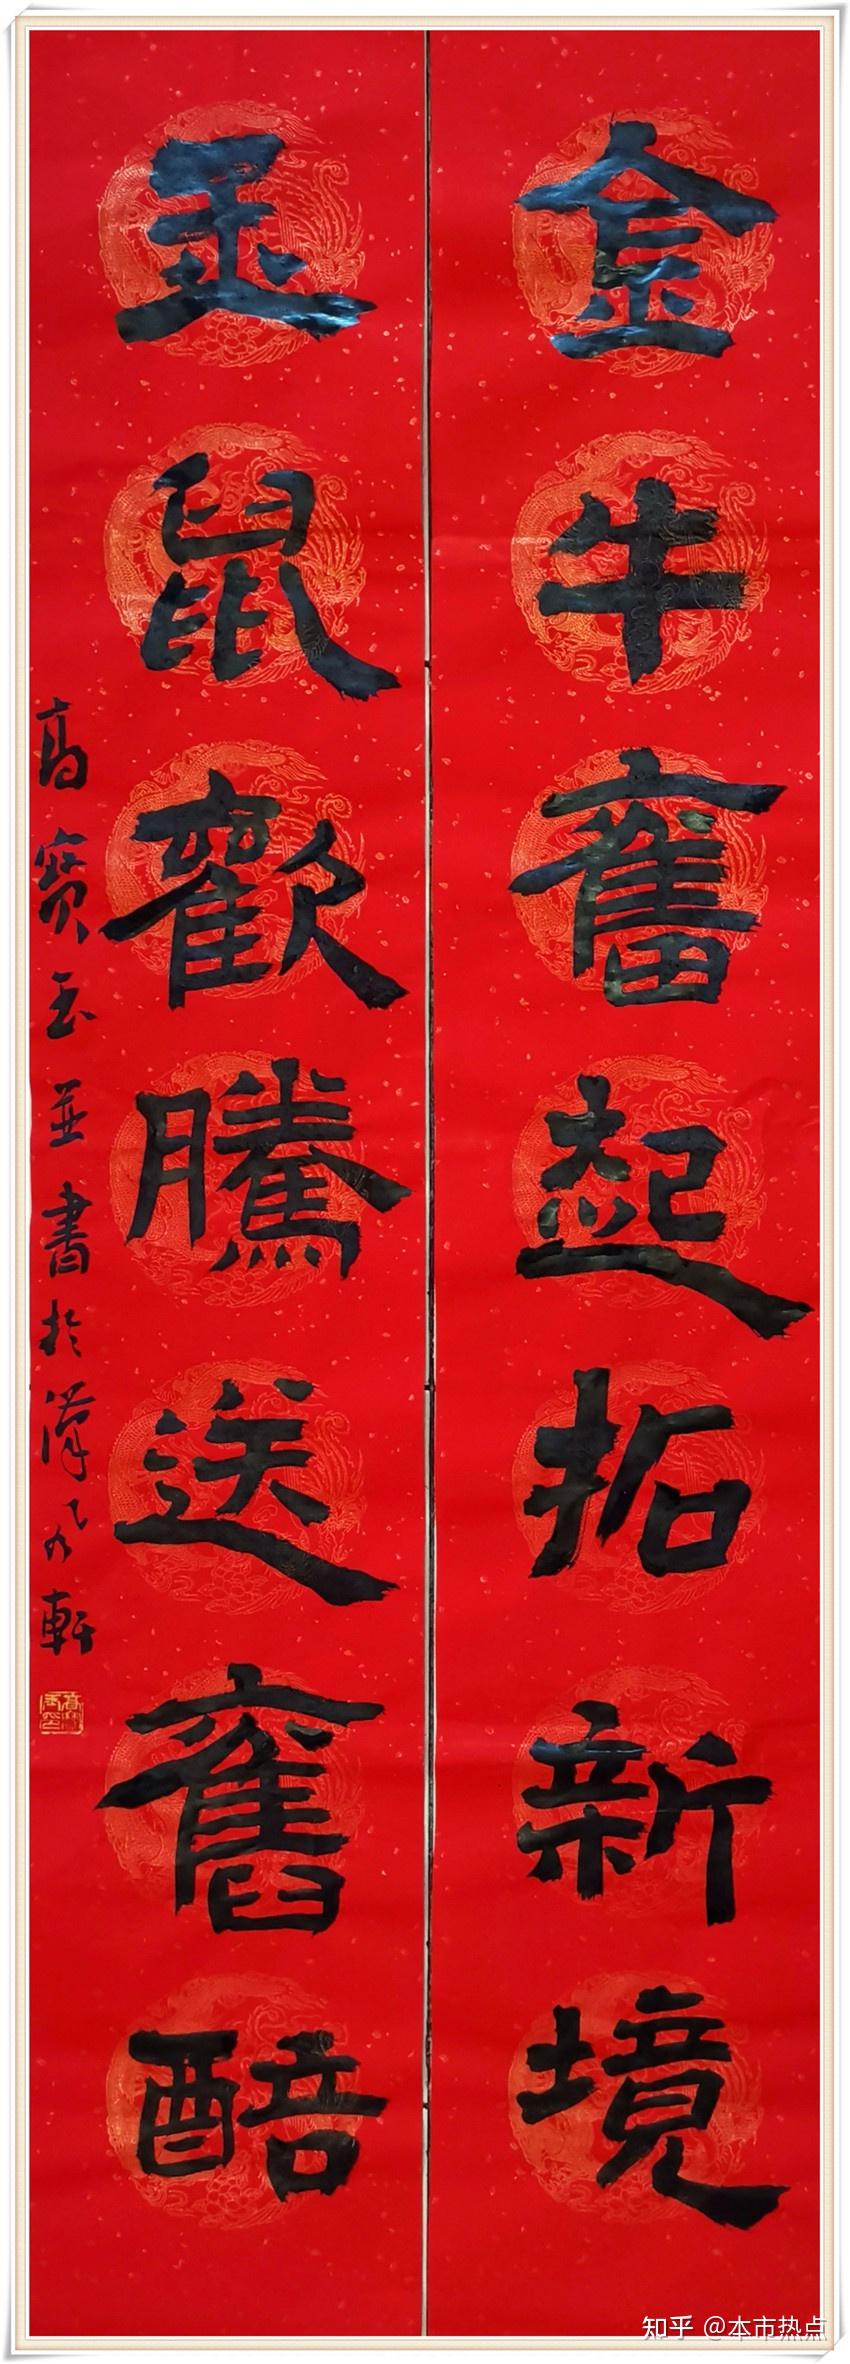 金牛奮起拓新境
玉鼠歡騰送舊醅
高寶玉並書於漢軒
知乎 @本市热点